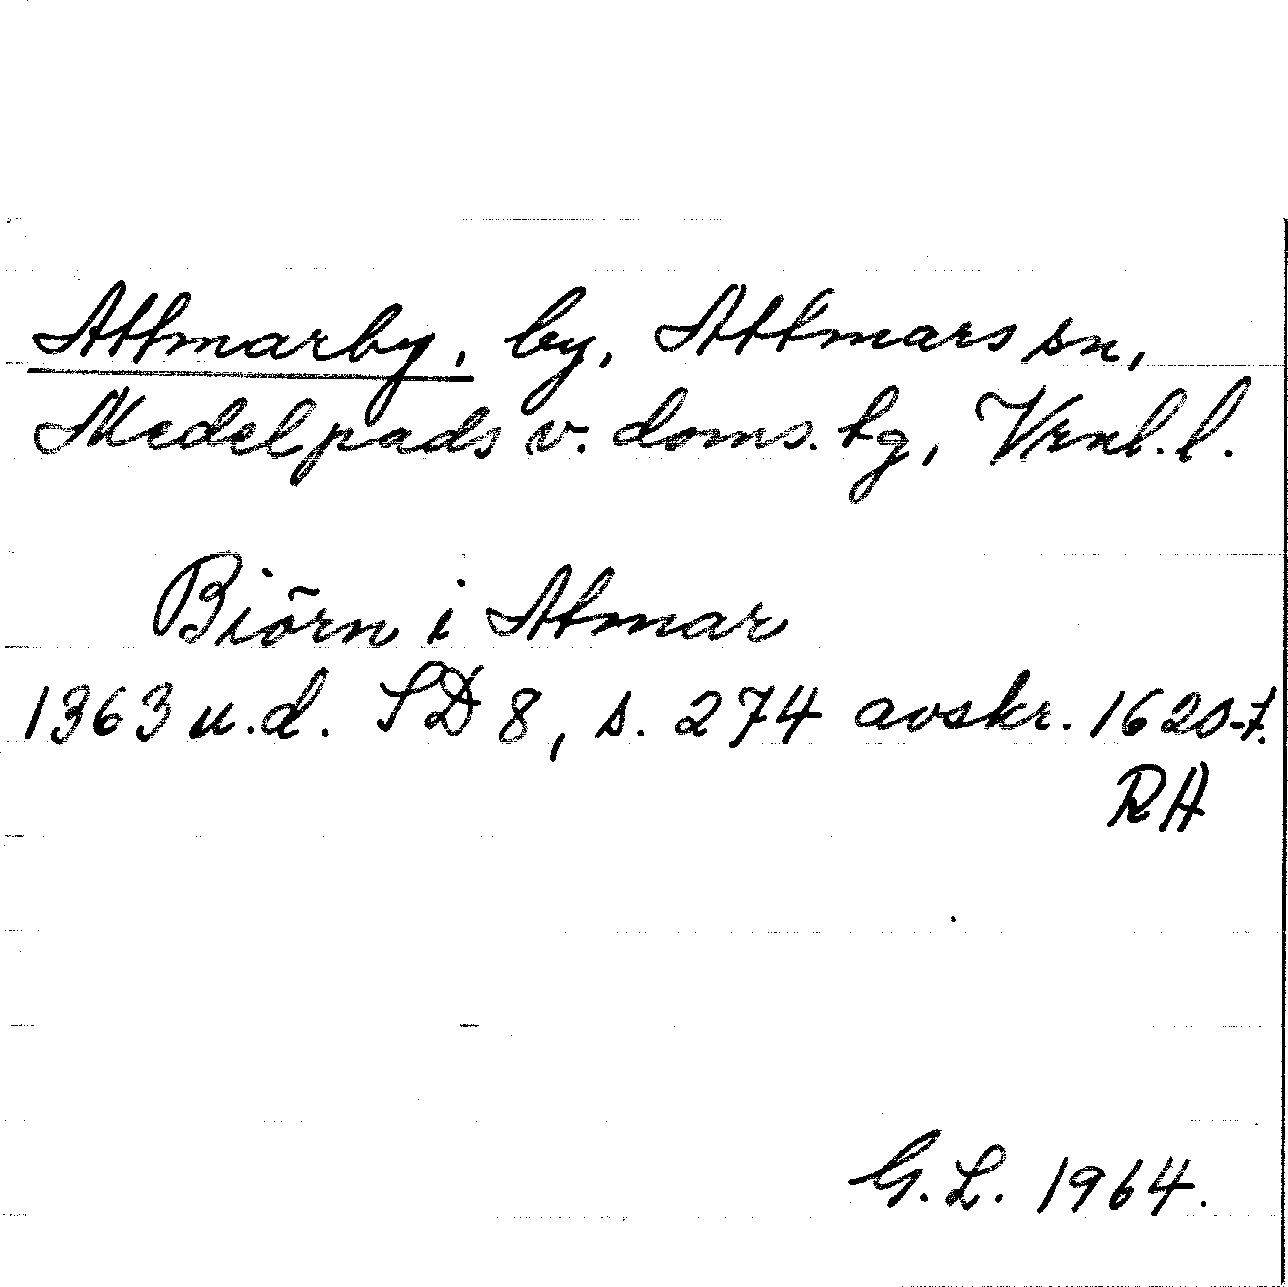 Attmarby, by, Attmars sn,
Medelpads v. doms. tg, Vrnl. l.
Biörn i Atmar
1363 u.d. SD 8, s. 274 avskr. 1620-t.
RA
G. L. 1964.